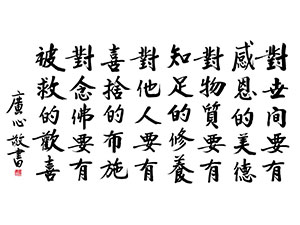 對世间要有
感恩的美德
對物質要有
知足的修養
對他人要有
喜捨的布施
對念佛要有
被救的歡喜
廣心敬書